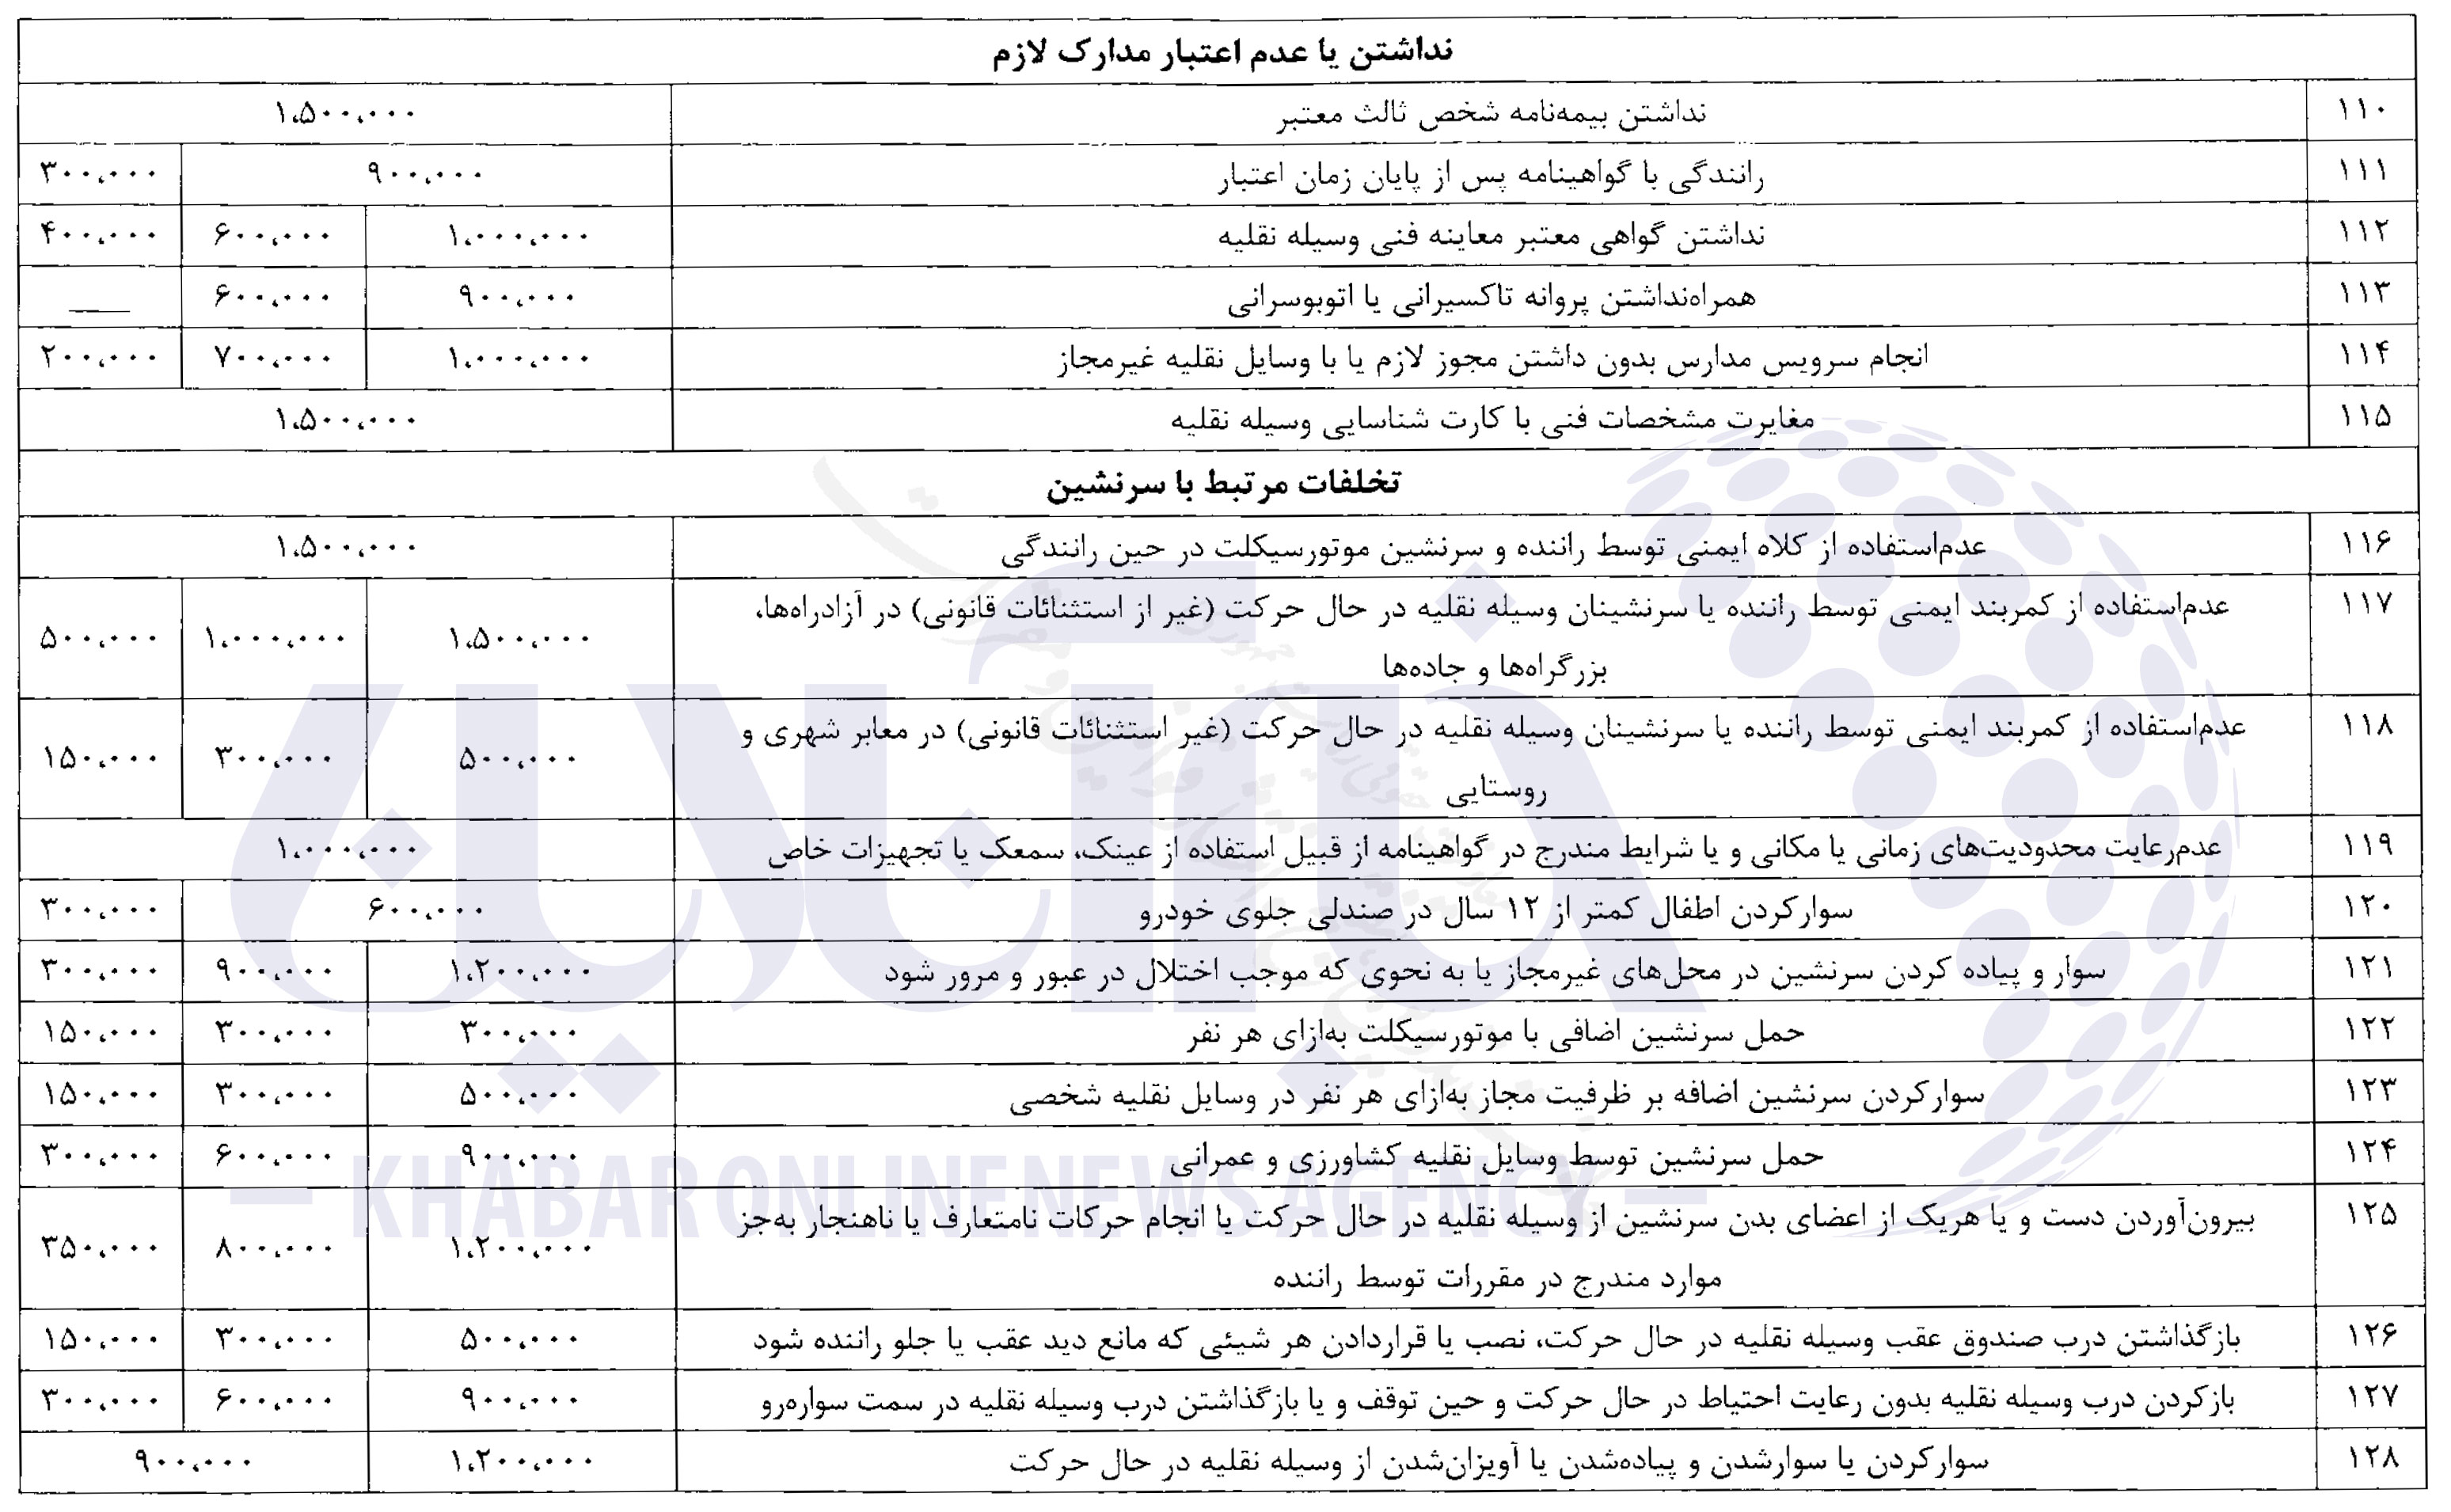 نداشتن یا عدم اعتبار مدارک لازم
۱۱۰ نداشتن بیمه‌نامه شخص ثالث معتبر ۱،۵۰۰،۰۰۰
۱۱۱ رانندگی با گواهینامه پس از پایان زمان اعتبار ۹۰۰،۰۰۰ ۳۰۰،۰۰۰
۱۱۲ نداشتن گواهی معتبر معاینه فنی وسیله نقلیه ۱،۰۰۰،۰۰۰ ۶۰۰،۰۰۰ ۴۰۰،۰۰۰
۱۱۳ همراه‌نداشتن پروانه تاکسیرانی یا اتوبوسرانی ۹۰۰،۰۰۰ ۶۰۰،۰۰۰ ___
۱۱۴ انجام سرویس مدارس بدون داشتن مجوز لازم یا با وسایل نقلیه غیرمجاز ۱،۰۰۰،۰۰۰ ۷۰۰،۰۰۰ ۲۰۰،۰۰۰
۱۱۵ مغایرت مشخصات فنی با کارت شناسایی وسیله نقلیه ۱،۵۰۰،۰۰۰
تخلفات مرتبط با سرنشین
۱۱۶ عدم‌استفاده از کلاه ایمنی توسط راننده و سرنشین موتورسیکلت در حین رانندگی ۱،۵۰۰،۰۰۰
۱۱۷ عدم‌استفاده از کمربند ایمنی توسط راننده یا سرنشینان وسیله نقلیه در حال حرکت (غیر از استثنائات قانونی) در آزادراه‌ها،
بزرگراه‌ها و جاده‌ها ۱،۵۰۰،۰۰۰ ۱،۰۰۰،۰۰۰ ۵۰۰،۰۰۰
۱۱۸ عدم‌استفاده از کمربند ایمنی توسط راننده یا سرنشینان وسیله نقلیه در حال حرکت (غیر استثنائات قانونی) در معابر شهری و
روستایی ۵۰۰،۰۰۰ ۳۰۰،۰۰۰ ۱۵۰،۰۰۰
۱۱۹ عدم‌رعایت محدودیت‌های زمانی یا مکانی و یا شرایط مندرج در گواهینامه از قبیل استفاده از عینک، سمعک یا تجهیزات خاص ۱،۰۰۰،۰۰۰
۱۲۰ سوارکردن اطفال کمتر از ۱۲ سال در صندلی جلوی خودرو ۶۰۰،۰۰۰ ۳۰۰،۰۰۰
۱۲۱ سوار و پیاده کردن سرنشین در محل‌های غیرمجاز یا به نحوی که موجب اختلال در عبور و مرور شود ۱،۲۰۰،۰۰۰ ۹۰۰،۰۰۰ ۳۰۰،۰۰۰
۱۲۲ حمل سرنشین اضافی با موتورسیکلت به‌ازای هر نفر ۳۰۰،۰۰۰ ۳۰۰،۰۰۰ ۱۵۰،۰۰۰
۱۲۳ سوارکردن سرنشین اضافه بر ظرفیت مجاز به‌ازای هر نفر در وسایل نقلیه شخصی ۵۰۰،۰۰۰ ۳۰۰،۰۰۰ ۱۵۰،۰۰۰
۱۲۴ حمل سرنشین توسط وسایل نقلیه کشاورزی و عمرانی ۹۰۰،۰۰۰ ۶۰۰،۰۰۰ ۳۰۰،۰۰۰
KHABARONLINE NEWS AGENCY
۱۲۵ بیرون‌آوردن دست و یا هریک از اعضای بدن سرنشین از وسیله نقلیه در حال حرکت یا انجام حرکات نامتعارف یا ناهنجار به‌جز
موارد مندرج در مقررات توسط راننده ۱،۲۰۰،۰۰۰ ۸۰۰،۰۰۰ ۳۵۰،۰۰۰
۱۲۶ بازگذاشتن درب صندوق عقب وسیله نقلیه در حال حرکت، نصب یا قراردادن هر شیئی که مانع دید عقب یا جلو راننده شود ۵۰۰،۰۰۰ ۳۰۰،۰۰۰ ۱۵۰،۰۰۰
۱۲۷ بازکردن درب وسیله نقلیه بدون رعایت احتیاط در حال حرکت و حین توقف و یا بازگذاشتن درب وسیله نقلیه در سمت سواره‌رو ۹۰۰،۰۰۰ ۶۰۰،۰۰۰ ۳۰۰،۰۰۰
۱۲۸ سوارکردن یا سوارشدن و پیاده‌شدن یا آویزان‌شدن از وسیله نقلیه در حال حرکت ۱،۲۰۰،۰۰۰ ۹۰۰،۰۰۰